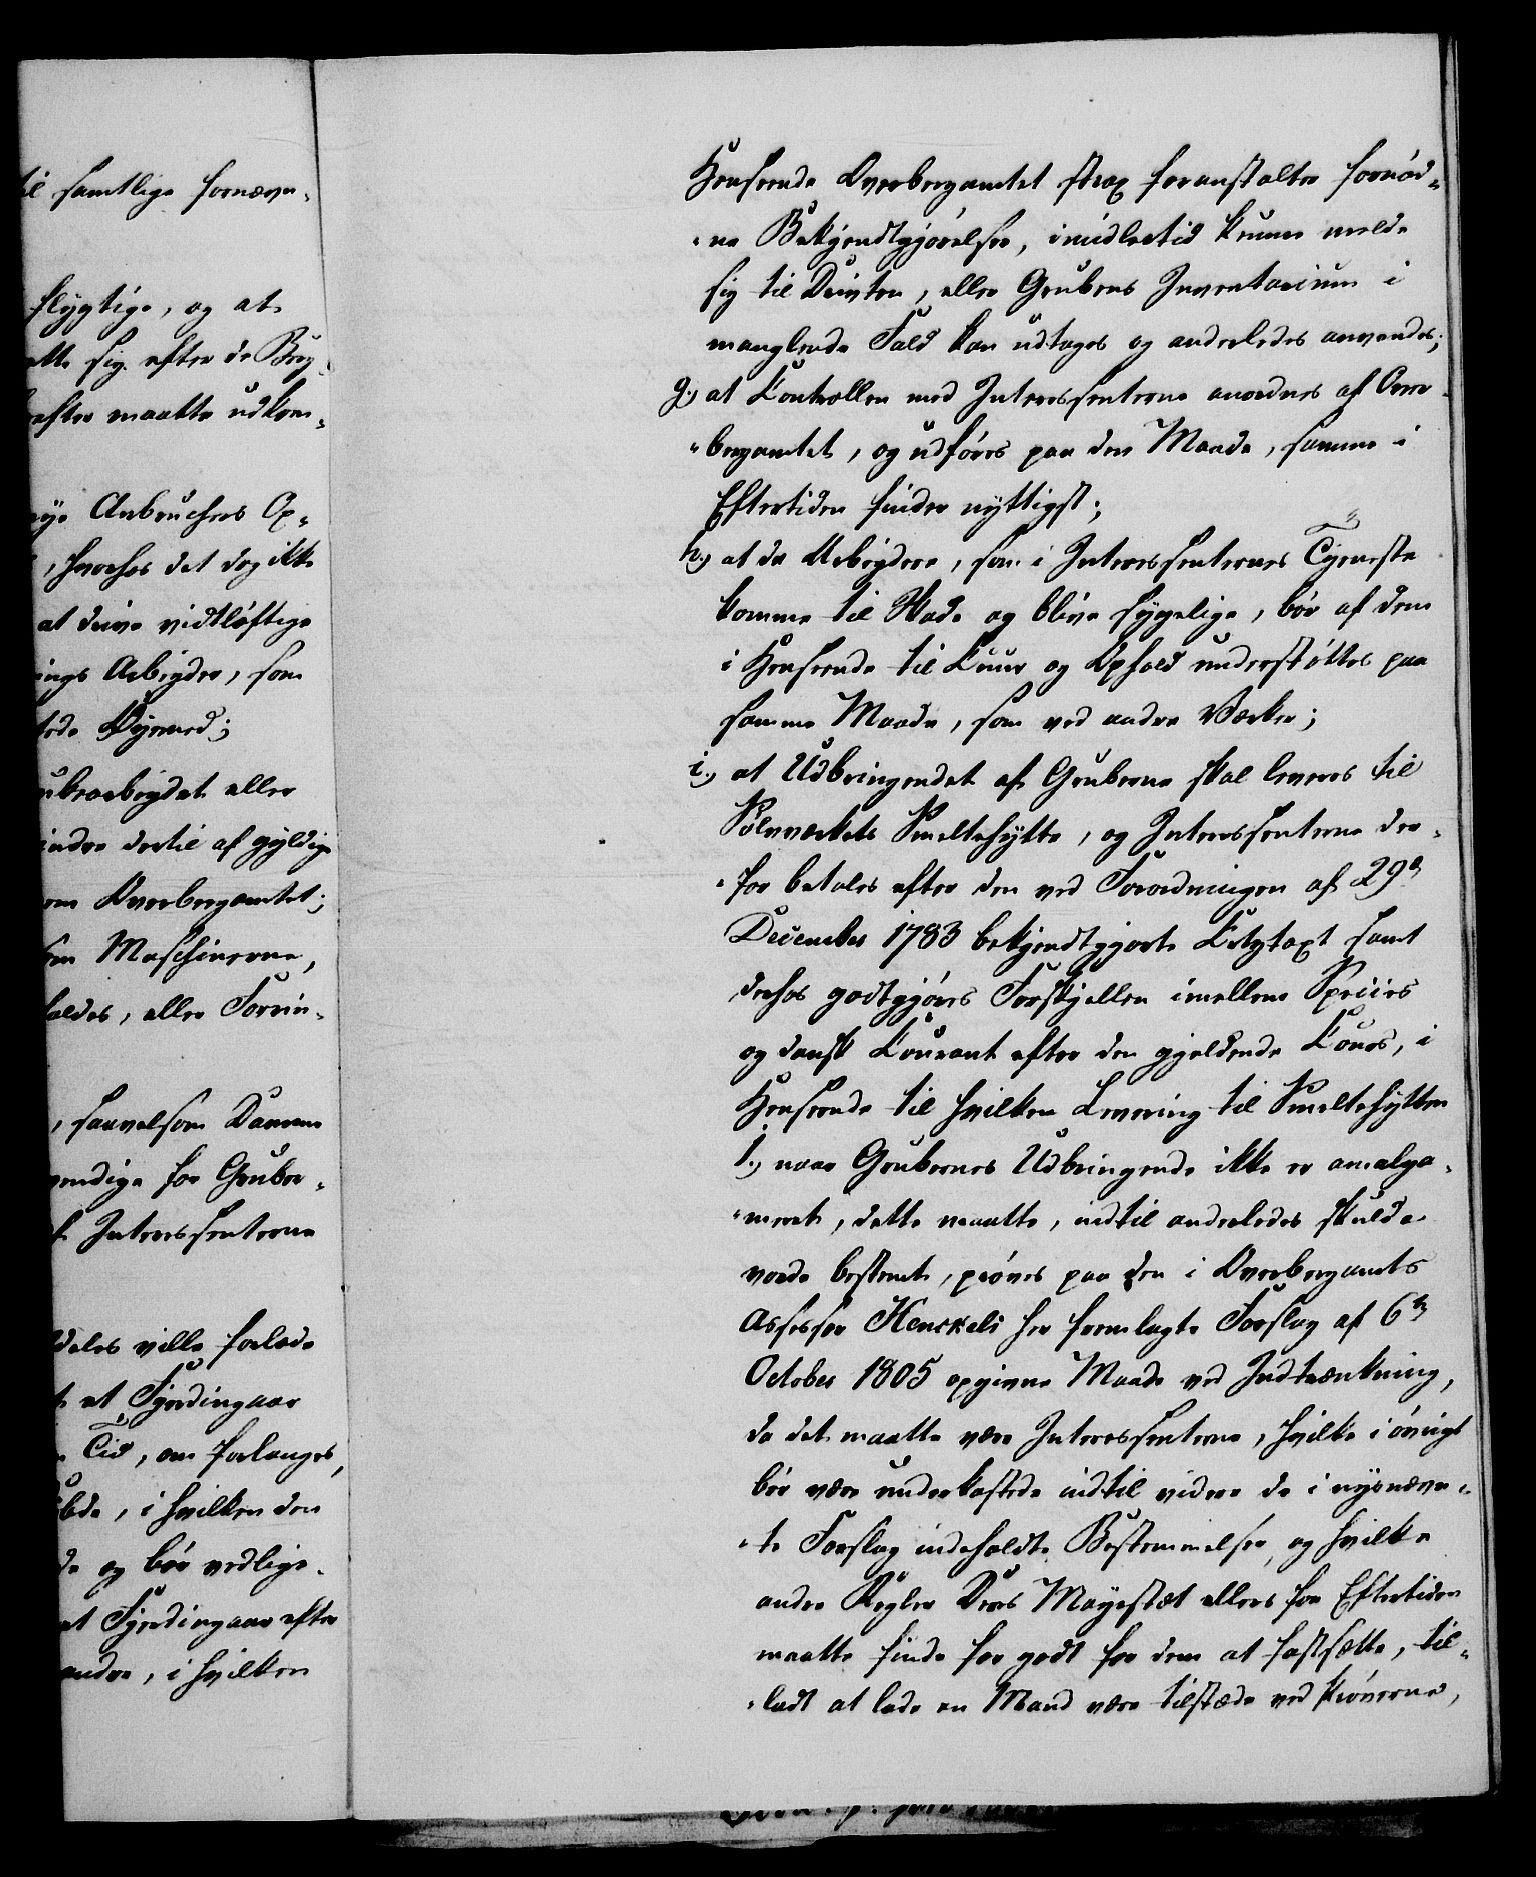 til samtlige fornævn-
flygtige, og at
ette sig efter de Berg-
efter maatte udkom-
nye Anbruchers Op-
, hvorhos det dog ikke
at drive vidtløftige
ings Arbeyder, som
tede Øyemed;
ubearbeydet eller
indre dertil af gyldige
om Overbergamtet;
Maschinerne,
holdes, eller Formin-
, saavelsom Damme
vendige for Gruber-
af Interessenterne
deles ville forlade
et Fjerdingaar
Tid, om forlanges,
, i hvilken den
de og bør vedlige-
et Fjerdingaar efter
andre, i hvilken
Henseende Overbergamtet strax foranstalter fornød-
-ne Bekjendtgjørelser, imidlertid kunne melde
sig til Driften, eller Grubens Inventarium i
manglende Fald kan udtages og anderledes anvendes;
g.) at Controllen med Interessenterne anordnes af Over-
-bergamtet, og udføres paa den Maade, samme i
Eftertiden finder nyttigst;
h.) at de Arbeydere, som i Interessenternes Tjeneste
komme til Skade og blive sygelige, bør af dem
i Henseende til Cuur og Ophold understøttes paa
samme Maade, som ved andre Værker;
i.) at Udbringendet af Gruberne skal leveres til
Sølvværkets Smeltehytte, og Interessenterne der-
-for betales efter den ved Forordningen af 29de
December 1783 bekjendtgjorte Ertztaxt samt
derhos godtgjøres Forskjellen imellem Species
og dansk Courant efter den gjeldende Cours, i
Henseende til hvilken Levering til Smeltehytten
1.) naar Grubernes Udbringende ikke er amalga-
-meret, dette maatte, indtil anderledes skulde
vorde bestemt, prøves paa den i Overbergamts
Assessor Henckels her fremlagte Forslag af 6te
October 1805 opgivne Maade ved Indtrænkning,
da det maatte være Interessenterne, hvilke i øvrigt
bør være underkastede indtil videre de i nysnævn-
-te Forslag indeholdte Bestemmelser, og hvilke
andre Regler Deres Mayestæt ellers for Eftertiden
maatte finde for godt for dem at fastsætte, til-
-ladt at lade en Mand være tilstæde ved Prøverne,